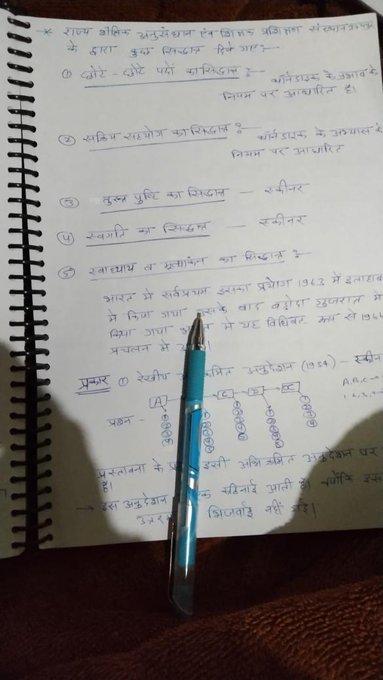 * राज्य शैक्षिक अनुसंधान एवं शिक्षक प्रशिक्षण संस्थान
के द्वारा कुछ सिद्धान्त दिये गए:-
① छोटे-छोटे पदों का सिद्धान्त :- थॉर्नडाइक के प्रभाव के
नियम पर आधारित है।
② सक्रिय सहयोग का सिद्धान्त : थॉर्नडाइक के अभ्यास के
नियम पर आधारित
③ तुरन्त पुष्टि का सिद्धान्त — स्कीनर
④ स्वगति का सिद्धान्त — स्कीनर
⑤ स्वाध्याय व मूल्यांकन का सिद्धान्त :-
भारत में सर्वप्रथम इसका प्रयोग 1963 में
में किया गया इसके बाद बड़ौदा गुजरात में
किया गया में यह विधिवत रूप से
प्रचलन में
प्रकार ① रेखीय अनुदेशन (1954) — स्कीन
A
प्रश्न -
प्रस्तावना के इसी अनुदेशन पर
है।
→ इस अनुदेशन कठिनाई आती है। क्योंकि इस
नहीं